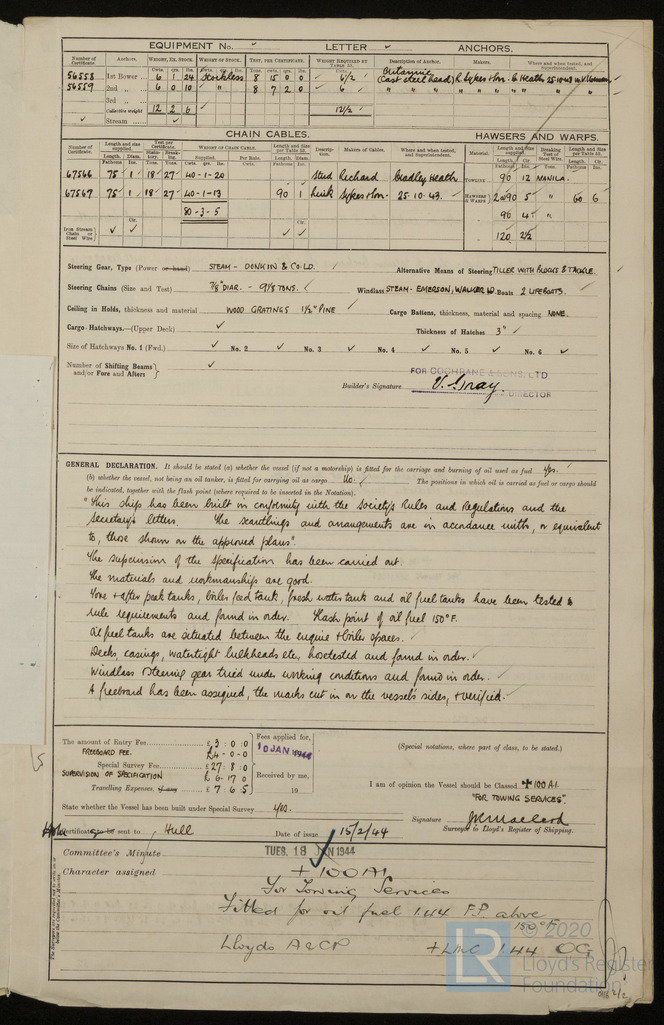 EQUIPMENT No. LETTER ANCHORS.
Number of Certificate. Anchors. WEIGHT, EX. STOCK. WEIGHT OF STOCK. TEST, PER CERTIFICATE. WEIGHT REQUIRED BY TABLE 53. Description of Anchor. Makers. Where and when tested, and Superintendent.
56558 1st Bower 6 1 24 Stockless 8 15 0 0 6 1/2 Britannic (Cast steel head) R. Sykes & Son. C. Heath 25.10.43
56559 2nd " 6 0 10 " 8 7 2 0 6 " " " "
3rd "
Collective weight 12 2 6 12 1/2
Stream
CHAIN CABLES. HAWSERS AND WARPS.
Number of Certificate. Length and size supplied. Test per Certificate. WEIGHT OF CHAIN CABLE. Length and Size per Table 53. Description. Makers of Cables. Where and when tested, and Superintendent. Material. Length and Size supplied. Breaking Test of Steel Wire. Length and Size per Table 53.
67566 75 1 18 27 40-1-20 Stud Richard Bradley Heath TOWLINE 90 12 MANILA.
67567 75 1 18 27 40-1-13 90 1 Link Sykes & Son. 25.10.43. HAWSERS & WARPS 2@90 5 " 60 6
80-3-5 90 4 "
Iron Stream Chain or Steel Wire 120 2 1/2
Steering Gear, Type (Power or hand) STEAM - DONKIN & CO. LD. Alternative Means of Steering TILLER WITH BLOCKS & TACKLE.
Steering Chains (Size and Test) 7/8" DIAR. - 9 1/8 TONS. Windlass STEAM - EMERSON, WALKER LD. Boats 2 LIFEBOATS.
Ceiling in Holds, thickness and material WOOD GRATINGS 1 1/2" PINE Cargo Battens, thickness, material and spacing NONE.
Cargo Hatchways.—(Upper Deck) Thickness of Hatches 3"
Size of Hatchways No. 1 (Fwd.) No. 2 No. 3 No. 4 No. 5 No. 6
Number of Shifting Beams and/or Fore and Afters
FOR COCHRANE & SONS, LTD
Builder's Signature V. Gray. DIRECTOR
GENERAL DECLARATION. It should be stated (a) whether the vessel (if not a motorship) is fitted for the carriage and burning of oil used as fuel yes.
(b) whether the vessel, not being an oil tanker, is fitted for carrying oil as cargo No. The positions in which oil is carried as fuel or cargo should
be indicated, together with the flash point (where required to be inserted in the Notation).
"This ship has been built in conformity with the Society's Rules and Regulations and the
Secretary's letters. The scantlings and arrangements are in accordance with, or equivalent
to, those shown on the approved plans".
The supervision of the Specification has been carried out.
The materials and workmanships are good.
Fore & after peak tanks, boiler feed tank, fresh water tank and oil fuel tanks have been tested to
rule requirements and found in order. Flash point of oil fuel 150°F.
Oil fuel tanks are situated between the engine & boiler spaces.
Decks, casings, watertight bulkheads etc, hosetested and found in order.
Windlass & steering gear tried under working conditions and found in order.
A freeboard has been assigned, the marks cut in on the vessel's sides, & verified.
The amount of Entry Fee £ 3 : 0 : 0 Fees applied for,
FREEBOARD FEE. £4 - 0 - 0 10 JAN 1944 (Special notations, where part of class, to be stated.)
Special Survey Fee £27 : 8 : 0
SUPERVISION OF SPECIFICATION £ 6 - 17 0 Received by me,
Travelling Expenses, if any £ 7 : 6 5 19 I am of opinion the Vessel should be Classed ✠100A1.
"FOR TOWING SERVICES".
State whether the Vessel has been built under Special Survey yes.
Signature
Surveyor to Lloyd's Register of Shipping.
Certificate to be sent to Hull Date of issue 15/2/44
Committee's Minute TUES. 18 JAN 1944
Character assigned + 100A1
For Towing Services
Fitted for oil fuel 1.44 F.P. above
150°F.
Lloyds A&CP + LMC 1.44 OG
LR © 2020
Lloyd's Register
Foundation